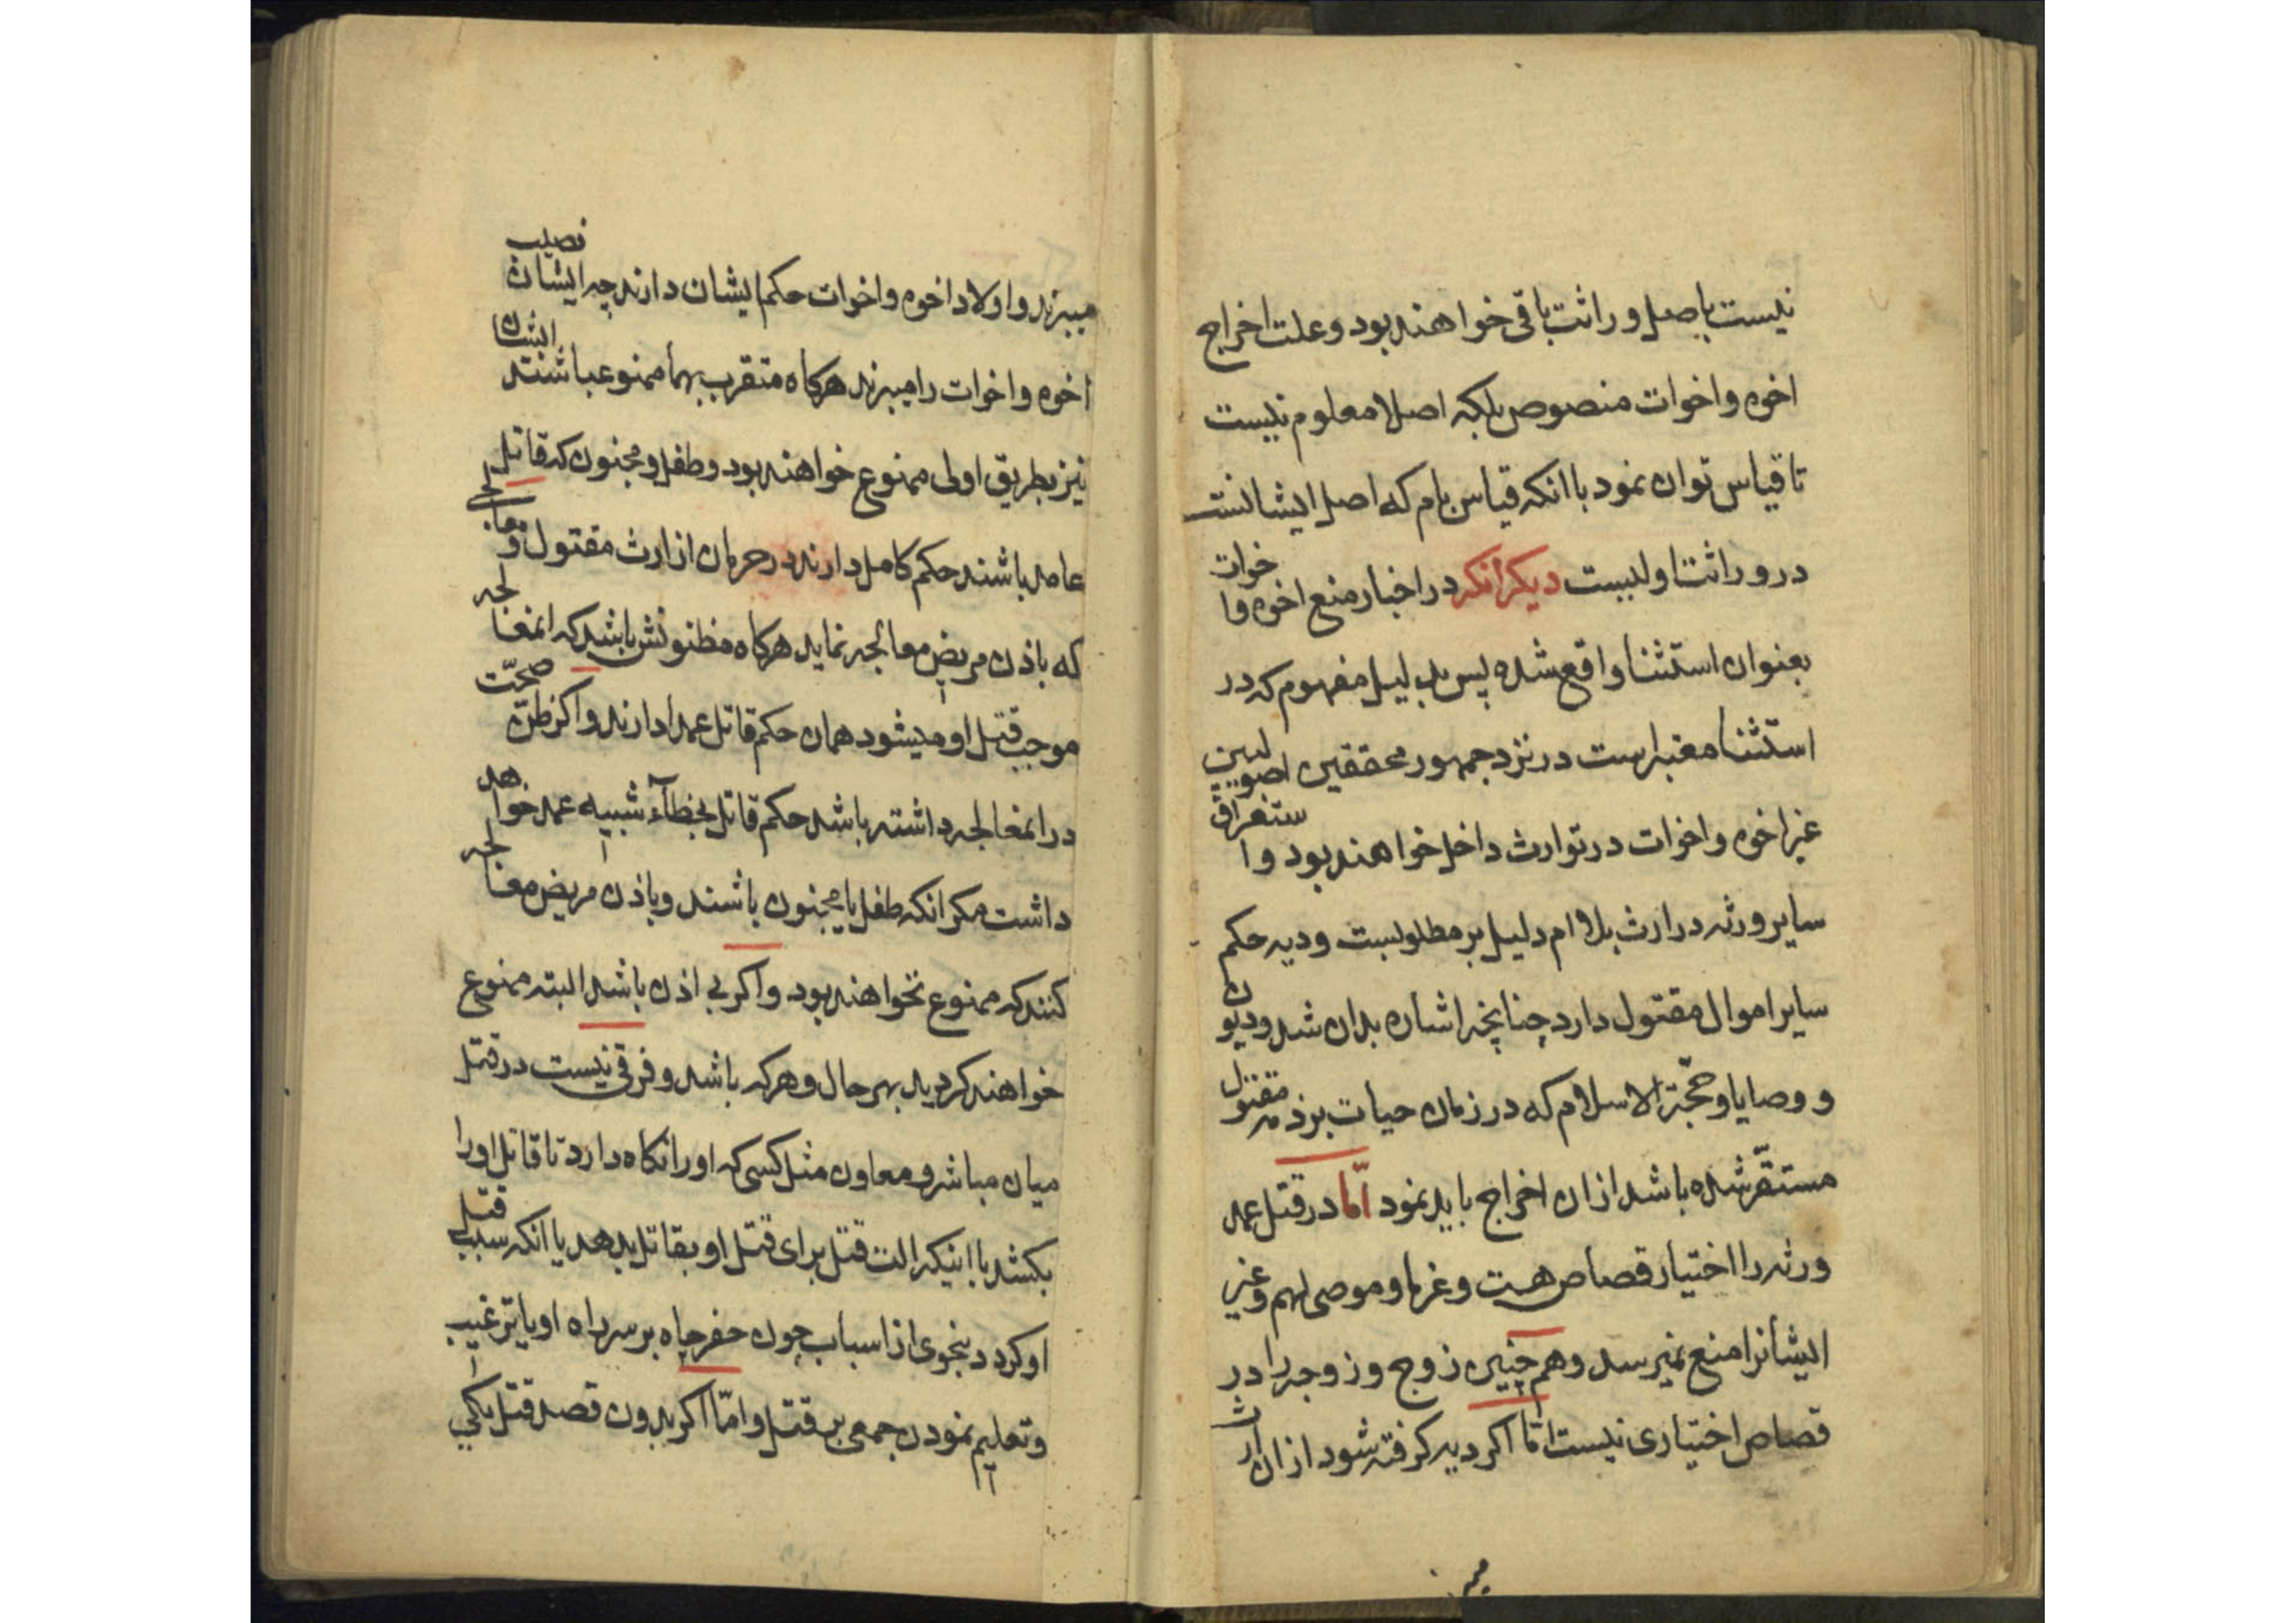 نیست باصل وراثت باقی خواهند بود و علت اخراج
اخوه و اخوات منصوص بلکه اصلا معلوم نیست
تا قیاس توان نمود با انکه قیاس بام که اصل ایشانست
در وراثت اولیست دیکر انکه در اخبار منع اخوه و اخوات
بعنوان استثنا واقع شده پس بدلیل مفهوم که در
استثنا معتبر است در نزد جمهور محققین اصولیین
غیر اخوه و اخوات در توارث داخل خواهند بود و استغراق
سایر ورثه در ارث بلا ام دلیل بر مطلوبست و دیه حکم
سایر اموال مقتول دارد چنانچه اشاره بدان شد و دیون
و وصایا و حجة الاسلام که در زمان حیات بر ذمه مقتول
مستقر شده باشد از ان اخراج باید نمود امّا در قتل عمد
ورثه را اختیار قصاص هست و غرما و موصی لهم و غیر
ایشانرا منع نمیرسد و هم چنین زوج و زوجه را در
قصاص اختیاری نیست امّا اکر دیه کرفته شود از ان ارث
میبرند و اولاد اخوه و اخوات حکم ایشان دارند چه ایشان نصیب
اخوه و اخوات را میبرند هرکاه متقرب بهما ممنوع باشند ایشان
نیز بطریق اولی ممنوع خواهند بود و طفل و مجنون که قاتل
عامد باشند حکم کامل دارند در حرمان از ارث مقتول و معالجی
که باذن مریض معالجه نماید هرکاه مظنونش باشد که انمعالجه
موجب قتل او میشود همان حکم قاتل عمدا دارند و اکر ظنّ صحّت
در انمعالجه داشته باشد حکم قاتل بخطآء شبیه عمد خواهد
داشت مکر انکه طفل یا مجنون باشند و باذن مریض معالجه
کنند که ممنوع نخواهند بود و اکر بی اذن باشد البته ممنوع
خواهند کردید بهر حال و هرکه باشد و فرقی نیست در قتل
میان مباشر و معاون مثل کسی که او را نکاه دارد تا قاتل او را
بکشد یا اینکه الت قتل برای قتل او بقاتل بدهد یا انکه سبب قتل
او کردد بنحوی از اسباب چون حفر چاه بر سر راه او یا ترغیب
و تعلیم نمودن جمعی بر قتل و امّا اکر بدون قصد قتل یکی
میبر